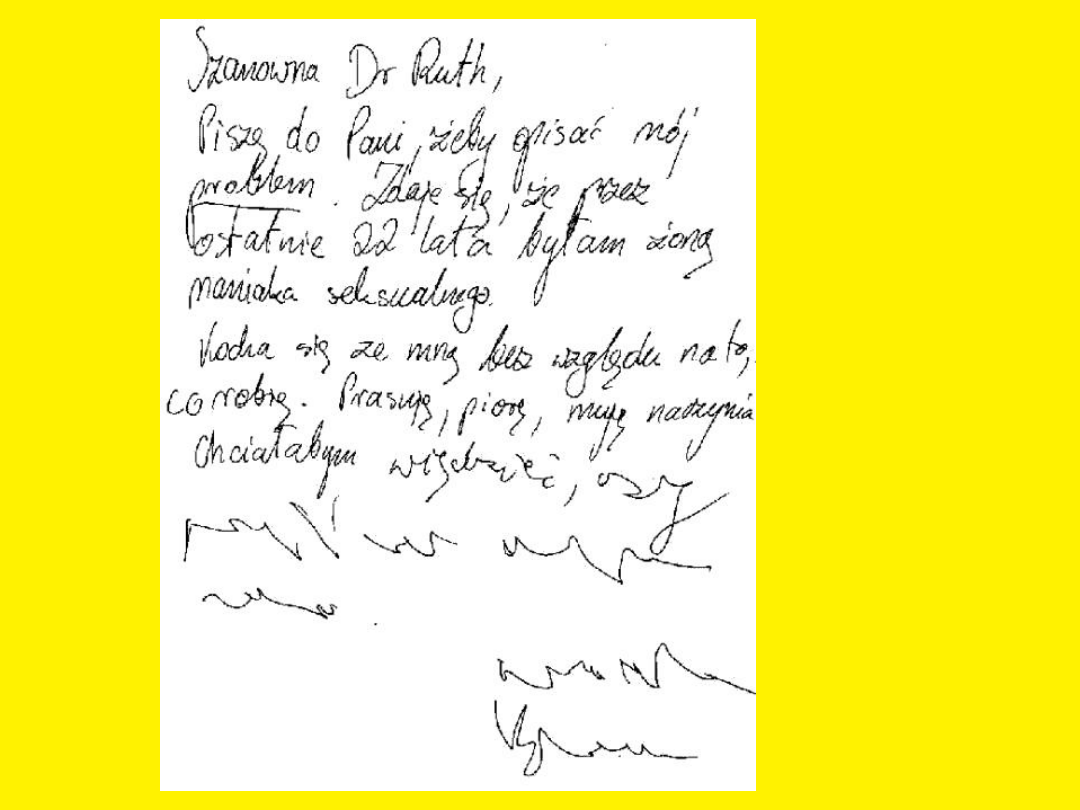 Szanowna Dr Ruth,
Piszę do Pani, żeby opisać mój
problem. Zdaje się, że przez
ostatnie 22 lata byłam żoną
maniaka seksualnego.
Kocha się ze mną bez względu na to,
co robię. Prasuję, piorę, myję naczynia
Chciałabym wiedzieć, czy